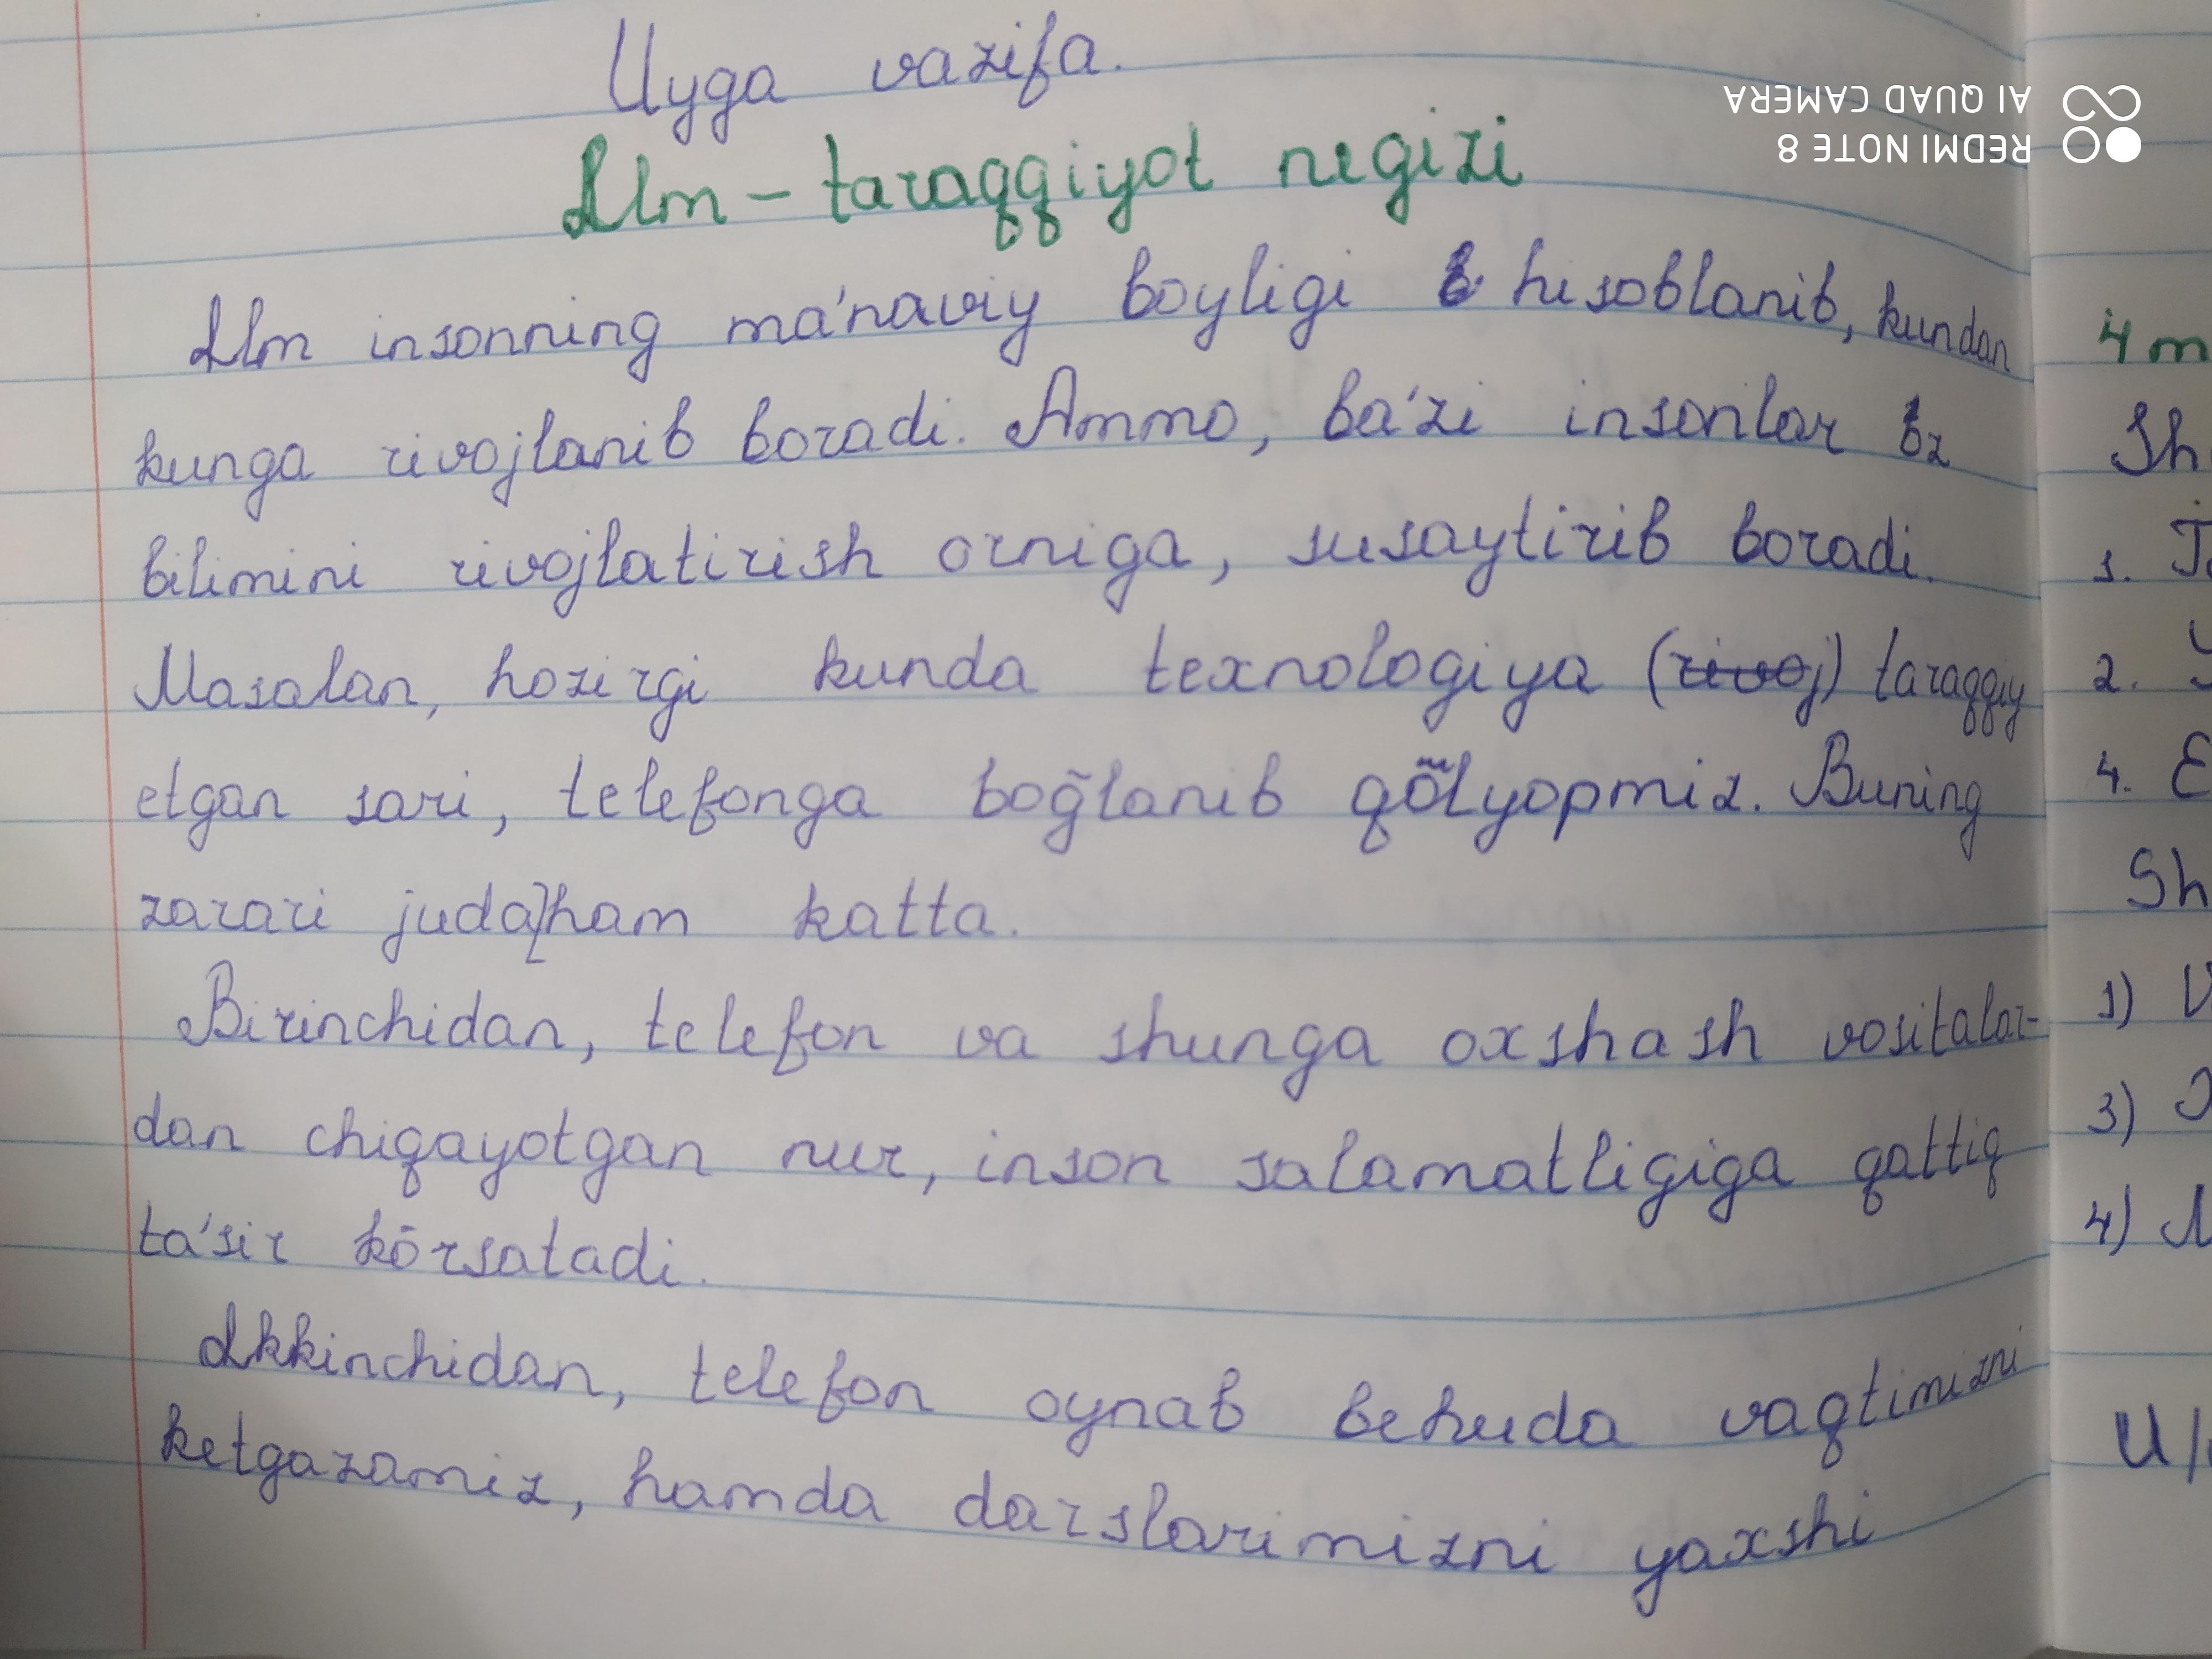 Uyga vazifa.
Ilm – taraqqiyot negizi
Ilm insonning ma'naviy boyligi hisoblanib, kundan
kunga rivojlanib boradi. Ammo, ba'zi insonlar
bilimini rivojlatirish orniga, susaytirib boradi.
Masalan, hozirgi kunda texnologiya (rivoj) taraqqiy
etgan sari, telefonga bog̃lanib qõlyopmiz. Buning
zarari juda ham katta.
Birinchidan, telefon va shunga oxshash vositalar-
dan chiqayotgan nur, inson salamatligiga qattiq
ta'sir kõrsatadi.
Ikkinchidan, telefon oynab behuda vaqtimizni
ketgazamiz, hamda darslarimizni yaxshi
4 m
Sh
1.
2.
4. E
Sh
1)
3)
4)
U/
REDMI NOTE 8
AI QUAD CAMERA